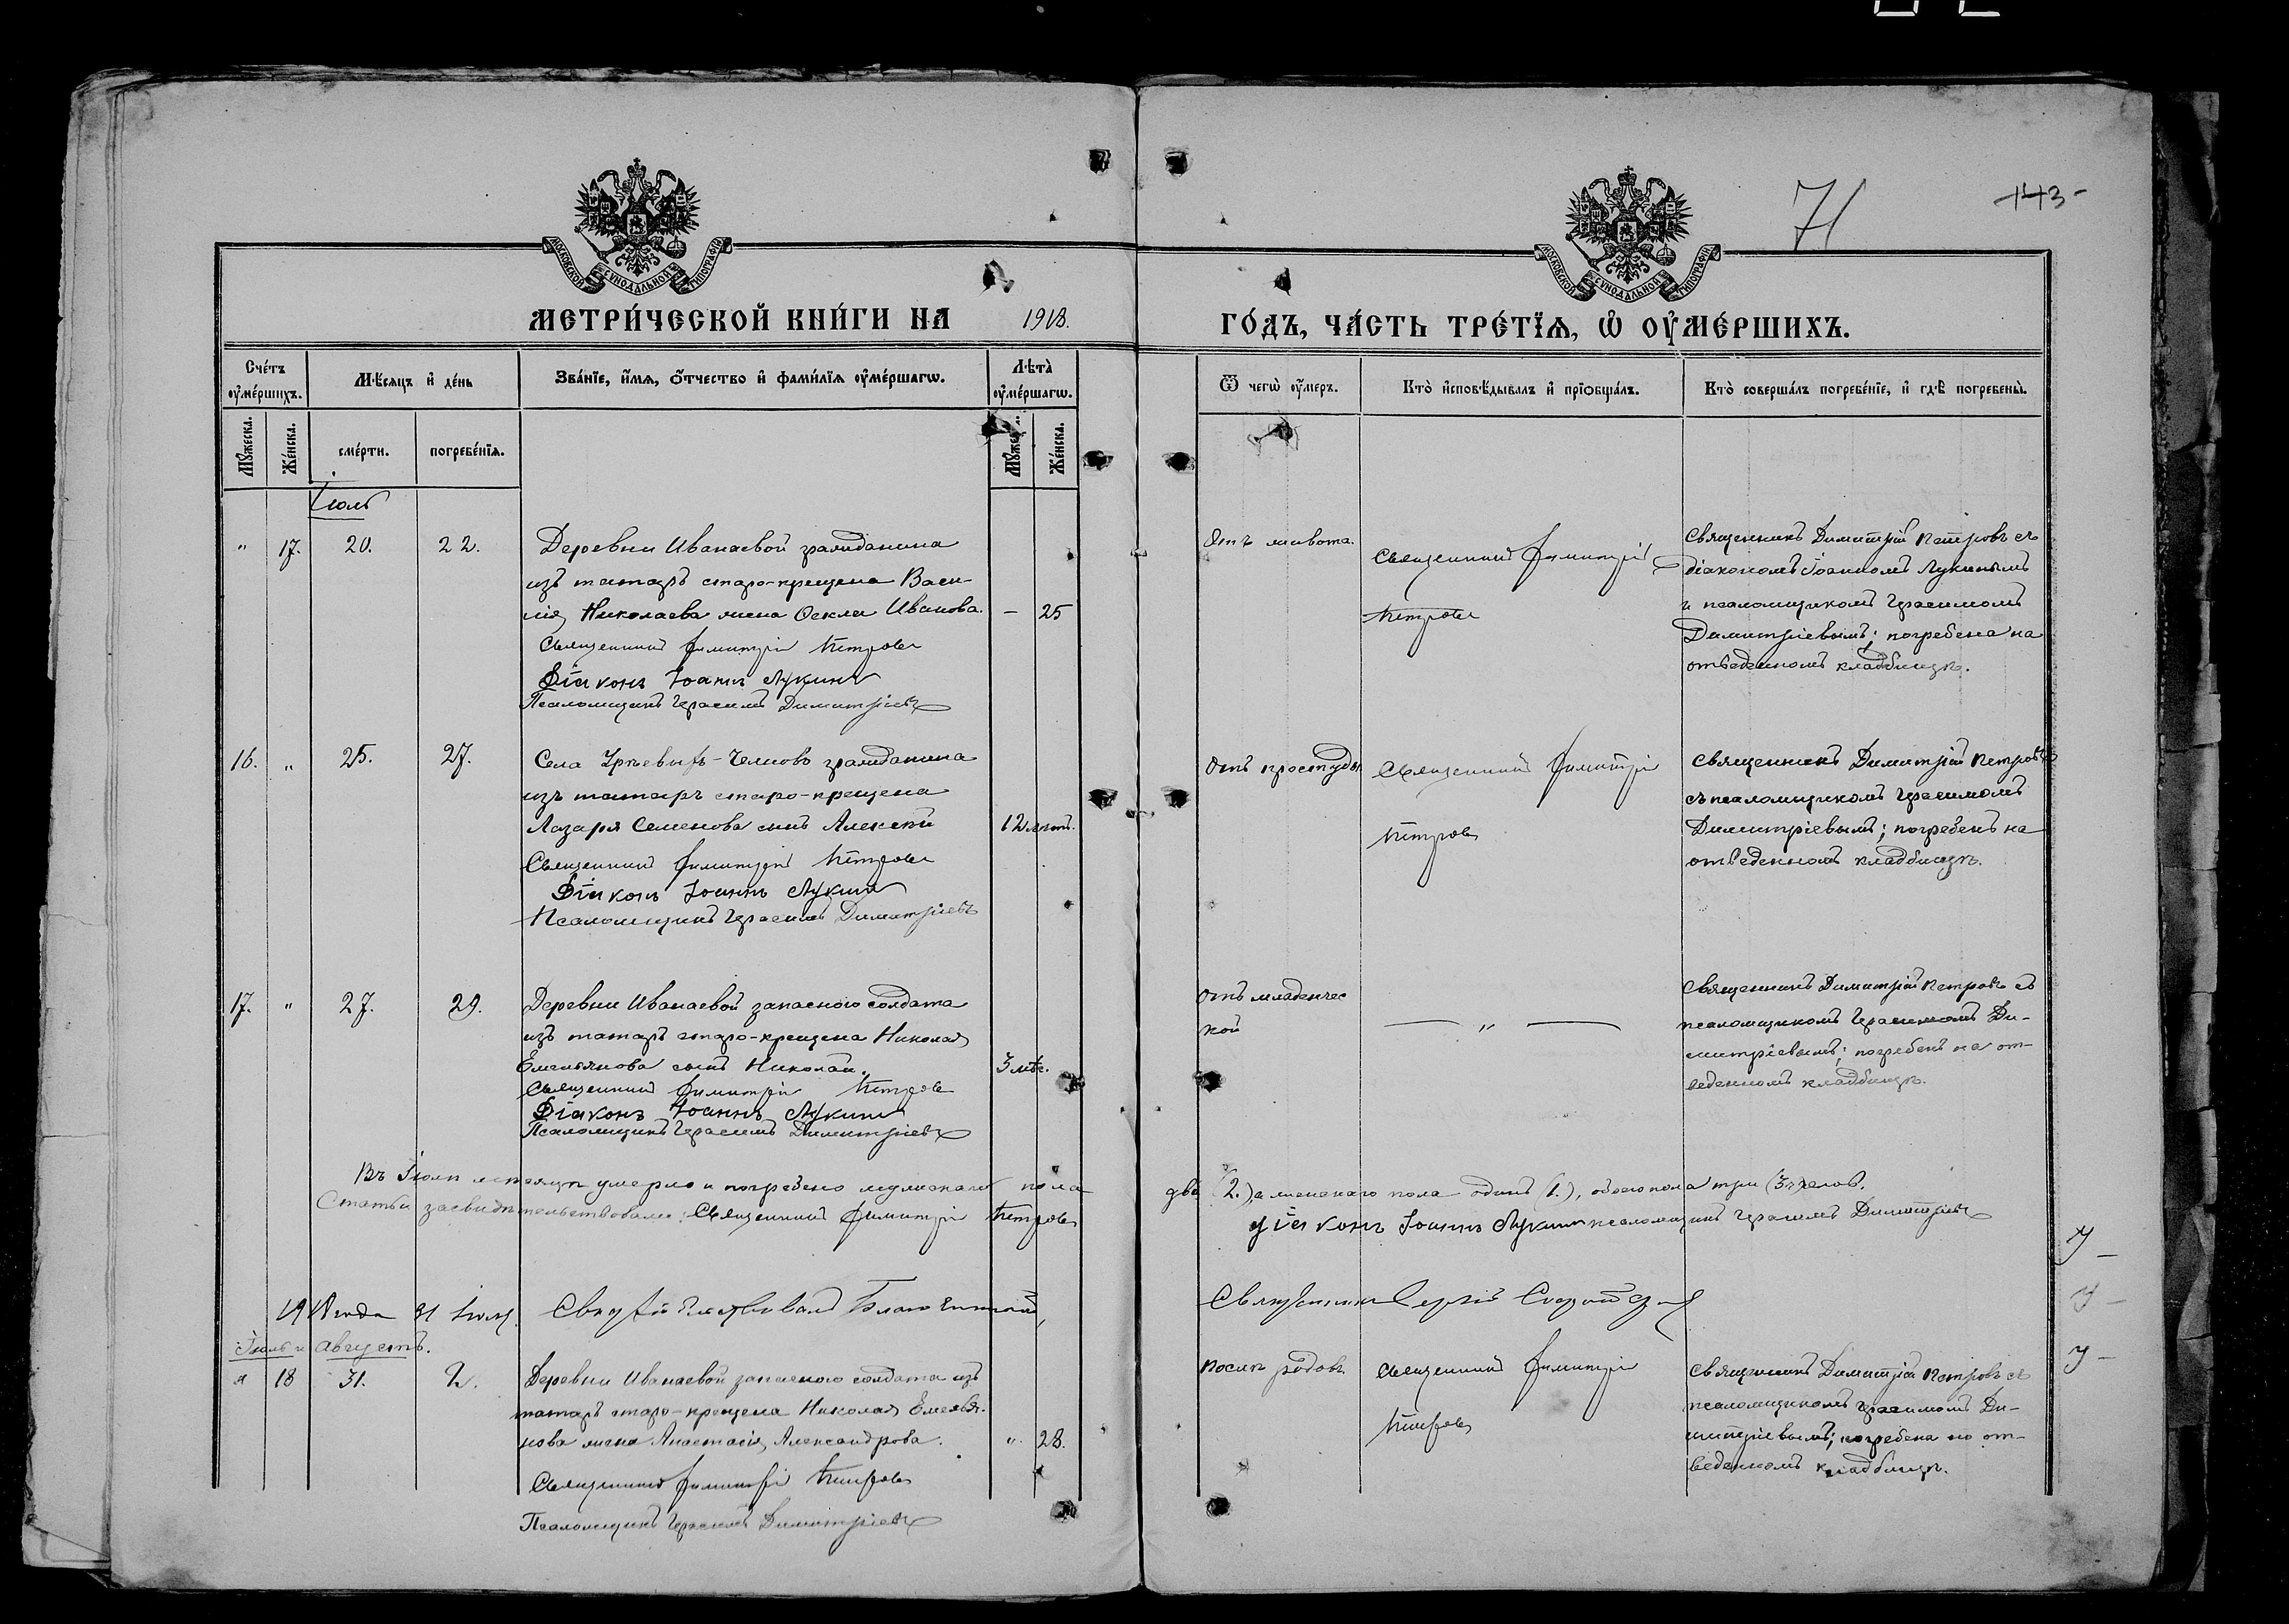 71
143-
МОСКОВСКОЙ СѴНОДАЛЬНОЙ ТИПОГРАФІИ
МОСКОВСКОЙ СѴНОДАЛЬНОЙ ТИПОГРАФІИ
МЕТРИ́ЧЕСКОЙ КНИ́ГИ НА 1918. ГО́ДЪ, ЧА́СТЬ ТРЕ́ТІѦ, Ѡ ОУ҆МЕ́РШИХЪ.
Сче́тъ оу҆ме́ршихъ.
Мѣ́сяцъ и҆ де́нь
Зва́нїе, и҆́мѧ, ѻ҆́тчество и҆ фами́лїѧ оу҆ме́ршагѡ.
Лѣта̀ оу҆ме́ршагѡ.
Ѿ чегѡ̀ оу҆́меръ.
Кто̀ и҆сповѣ́дывалъ и҆ прїѡбща́лъ.
Кто̀ соверша́лъ погребе́нїе, и҆ гдѣ̀ погребены̀.
Мꙋ́жеска.
Же́нска.
сме́рти.
погребе́нїѧ.
Мꙋ́жеска.
Же́нска.
Іюль
" 17. 20. 22.
Деревни Иванаевой гражданина
изъ татаръ старо-крещена Васи-
лія Николаева жена Фекла Иванова. — 25
Священникъ Димитрій Петровъ
Діаконъ Іоаннъ Лукинъ
Псаломщикъ Герасимъ Димитріевъ
Отъ живота.
Священникъ Димитрій
Петровъ
Священникъ Димитрій Петровъ съ
діакономъ Іоанномъ Лукинымъ
и псаломщикомъ Герасимомъ
Димитріевымъ; погребена на
отведенномъ кладбищѣ.
16. " 25. 27.
Села гражданина
изъ татаръ старо-крещена
Лазаря Семенова сынъ Алексѣй 12 лѣтъ.
Священникъ Димитрій Петровъ
Діаконъ Іоаннъ Лукинъ
Псаломщикъ Герасимъ Димитріевъ
Отъ простуды
Священникъ Димитрій
Петровъ
Священникъ Димитрій Петровъ
съ псаломщикомъ Герасимомъ
Димитріевымъ; погребенъ на
отведенномъ кладбищѣ.
17. " 27. 29.
Деревни Иванаевой запасного солдата
изъ татаръ старо-крещена Николая
Емельянова сынъ Николай. 3 мѣс.
Священникъ Димитрій Петровъ
Діаконъ Іоаннъ Лукинъ
Псаломщикъ Герасимъ Димитріевъ
Отъ младенчес
кой
— " —
Священникъ Димитрій Петровъ съ
псаломщикомъ Герасимомъ Ди-
митріевымъ; погребенъ на от-
веденномъ кладбищѣ.
Въ Іюлѣ мѣсяцѣ умерло и погребено мужскаго пола два (2.), а женскаго пола одинъ (1.), обоего пола три (3) челов.
Статьи засвидѣтельствовали: Священникъ Димитрій Петровъ
діаконъ Іоаннъ Лукинъ псаломщикъ Герасимъ Димитріевъ
1918 года 31 Іюля. Свидѣтельствовалъ Благочинный, Священникъ Сергій
Іюль и Августъ.
" 18 31. 2.
Деревни Иванаевой запасного солдата изъ
татаръ старо-крещена Николая Емелья-
нова жена Анастасія Александрова. " 28.
Священникъ Димитрій Петровъ
Псаломщикъ Герасимъ Димитріевъ
послѣ родовъ
Священникъ Димитрій
Петровъ
Священникъ Димитрій Петровъ съ
псаломщикомъ Герасимомъ Ди-
митріевымъ; погребена на от-
веденномъ кладбищѣ.